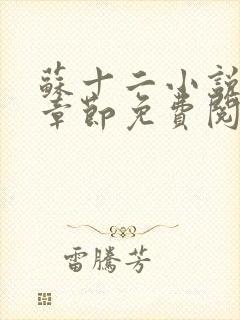 蘇十二小說
章節免費閱
雷騰芳